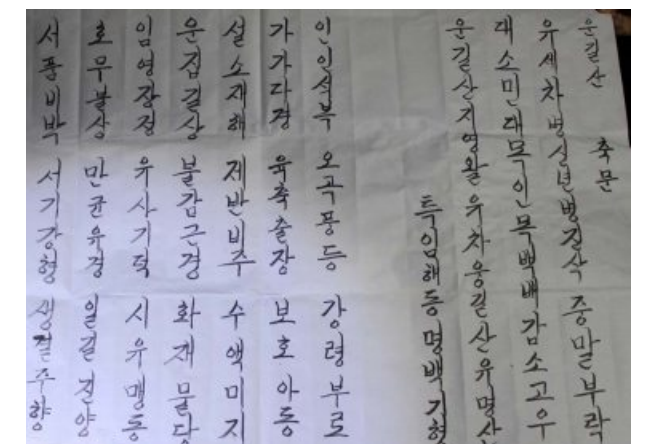 운길산 축문
유세차병신년병진삭 중말부락
대소민대목인목백배 감소고우
운길산지영왈 유차웅길산 유명산
특임해동 명백기형
인인성복 오곡풍등 강령부로
가가다경 육축출장 보호아동
설소재해 제반비주 수액미지
운집길상 불감근경 화재물당
임영장정 유사기덕 시유맹동
호무불상 만균유경 일길진양
서풍비박 서기강형 생결주향